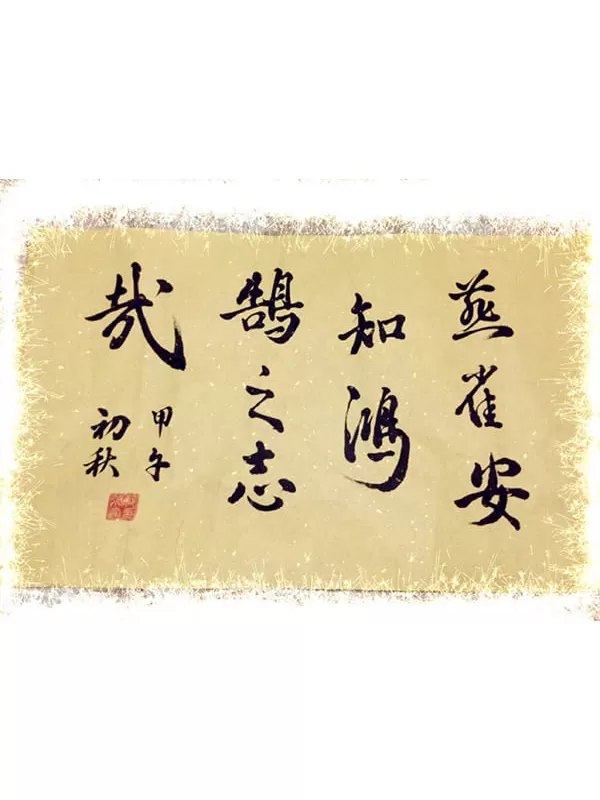 燕雀安
知鸿
鹄之志
哉
甲午
初秋